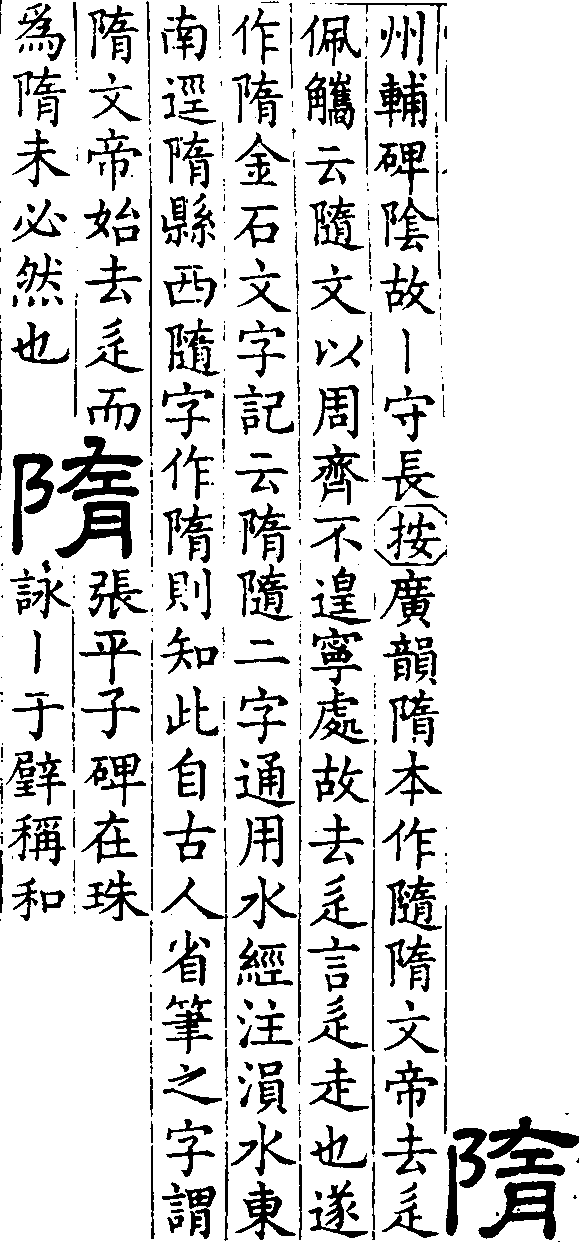 隋
州輔碑陰故丨守長按廣韻隋本作隨隋文帝去辵
佩觿云隨文以周齊不遑寧處故去辵言辵走也遂
作隋金石文字記云隋隨二字通用水經注溳水東
南逕隋縣西隨字作隋則知此自古人省筆之字謂
隋文帝始去辵而隋張平子碑在珠
爲隋未必然也詠丨于璧稱和